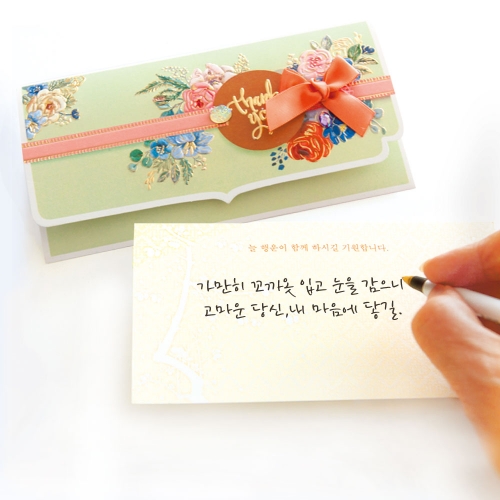 thank
you
늘 행운이 함께 하시길 기원합니다.
가만히 꼬까옷 입고 눈을 감으니
고마운 당신,내 마음에 닿길.